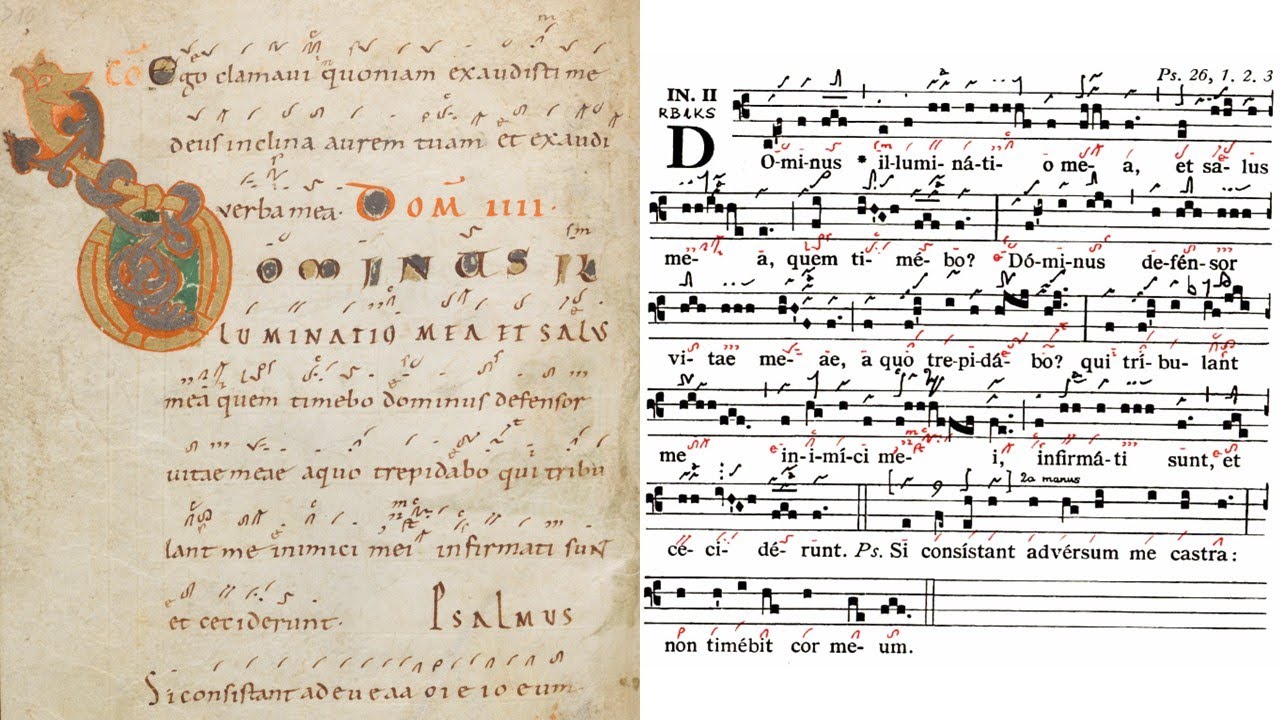 Co Ego clamaui quoniam exaudisti me
deus inclina aurem tuam et exaudi
verba mea. DOM IIII.
DOMINUS IL
LUMINATIO MEA ET SALUS
mea quem timebo dominus defensor
vitae meae aquo trepidabo qui tribu
lant me inimici mei infirmati sunt
et ceciderunt. Psalmus
Si consistant ad e u e aa o i e io e um
IN. II
RBKS
Ps. 26, 1. 2. 3
DO-mi-nus * il-lu-mi-ná-ti- o me- a, et sa- lus
me- a, quem ti- mé- bo? Dó-mi-nus de-fén-sor
vi- tae me- ae, a quo tre-pi-dá- bo? qui trí-bu- lant
me in-i-mí-ci me- i, infirmá-ti sunt, et
2a manus
ce-ci- dé- runt. Ps. Si consístant advérsum me castra:
non timébit cor me- um.